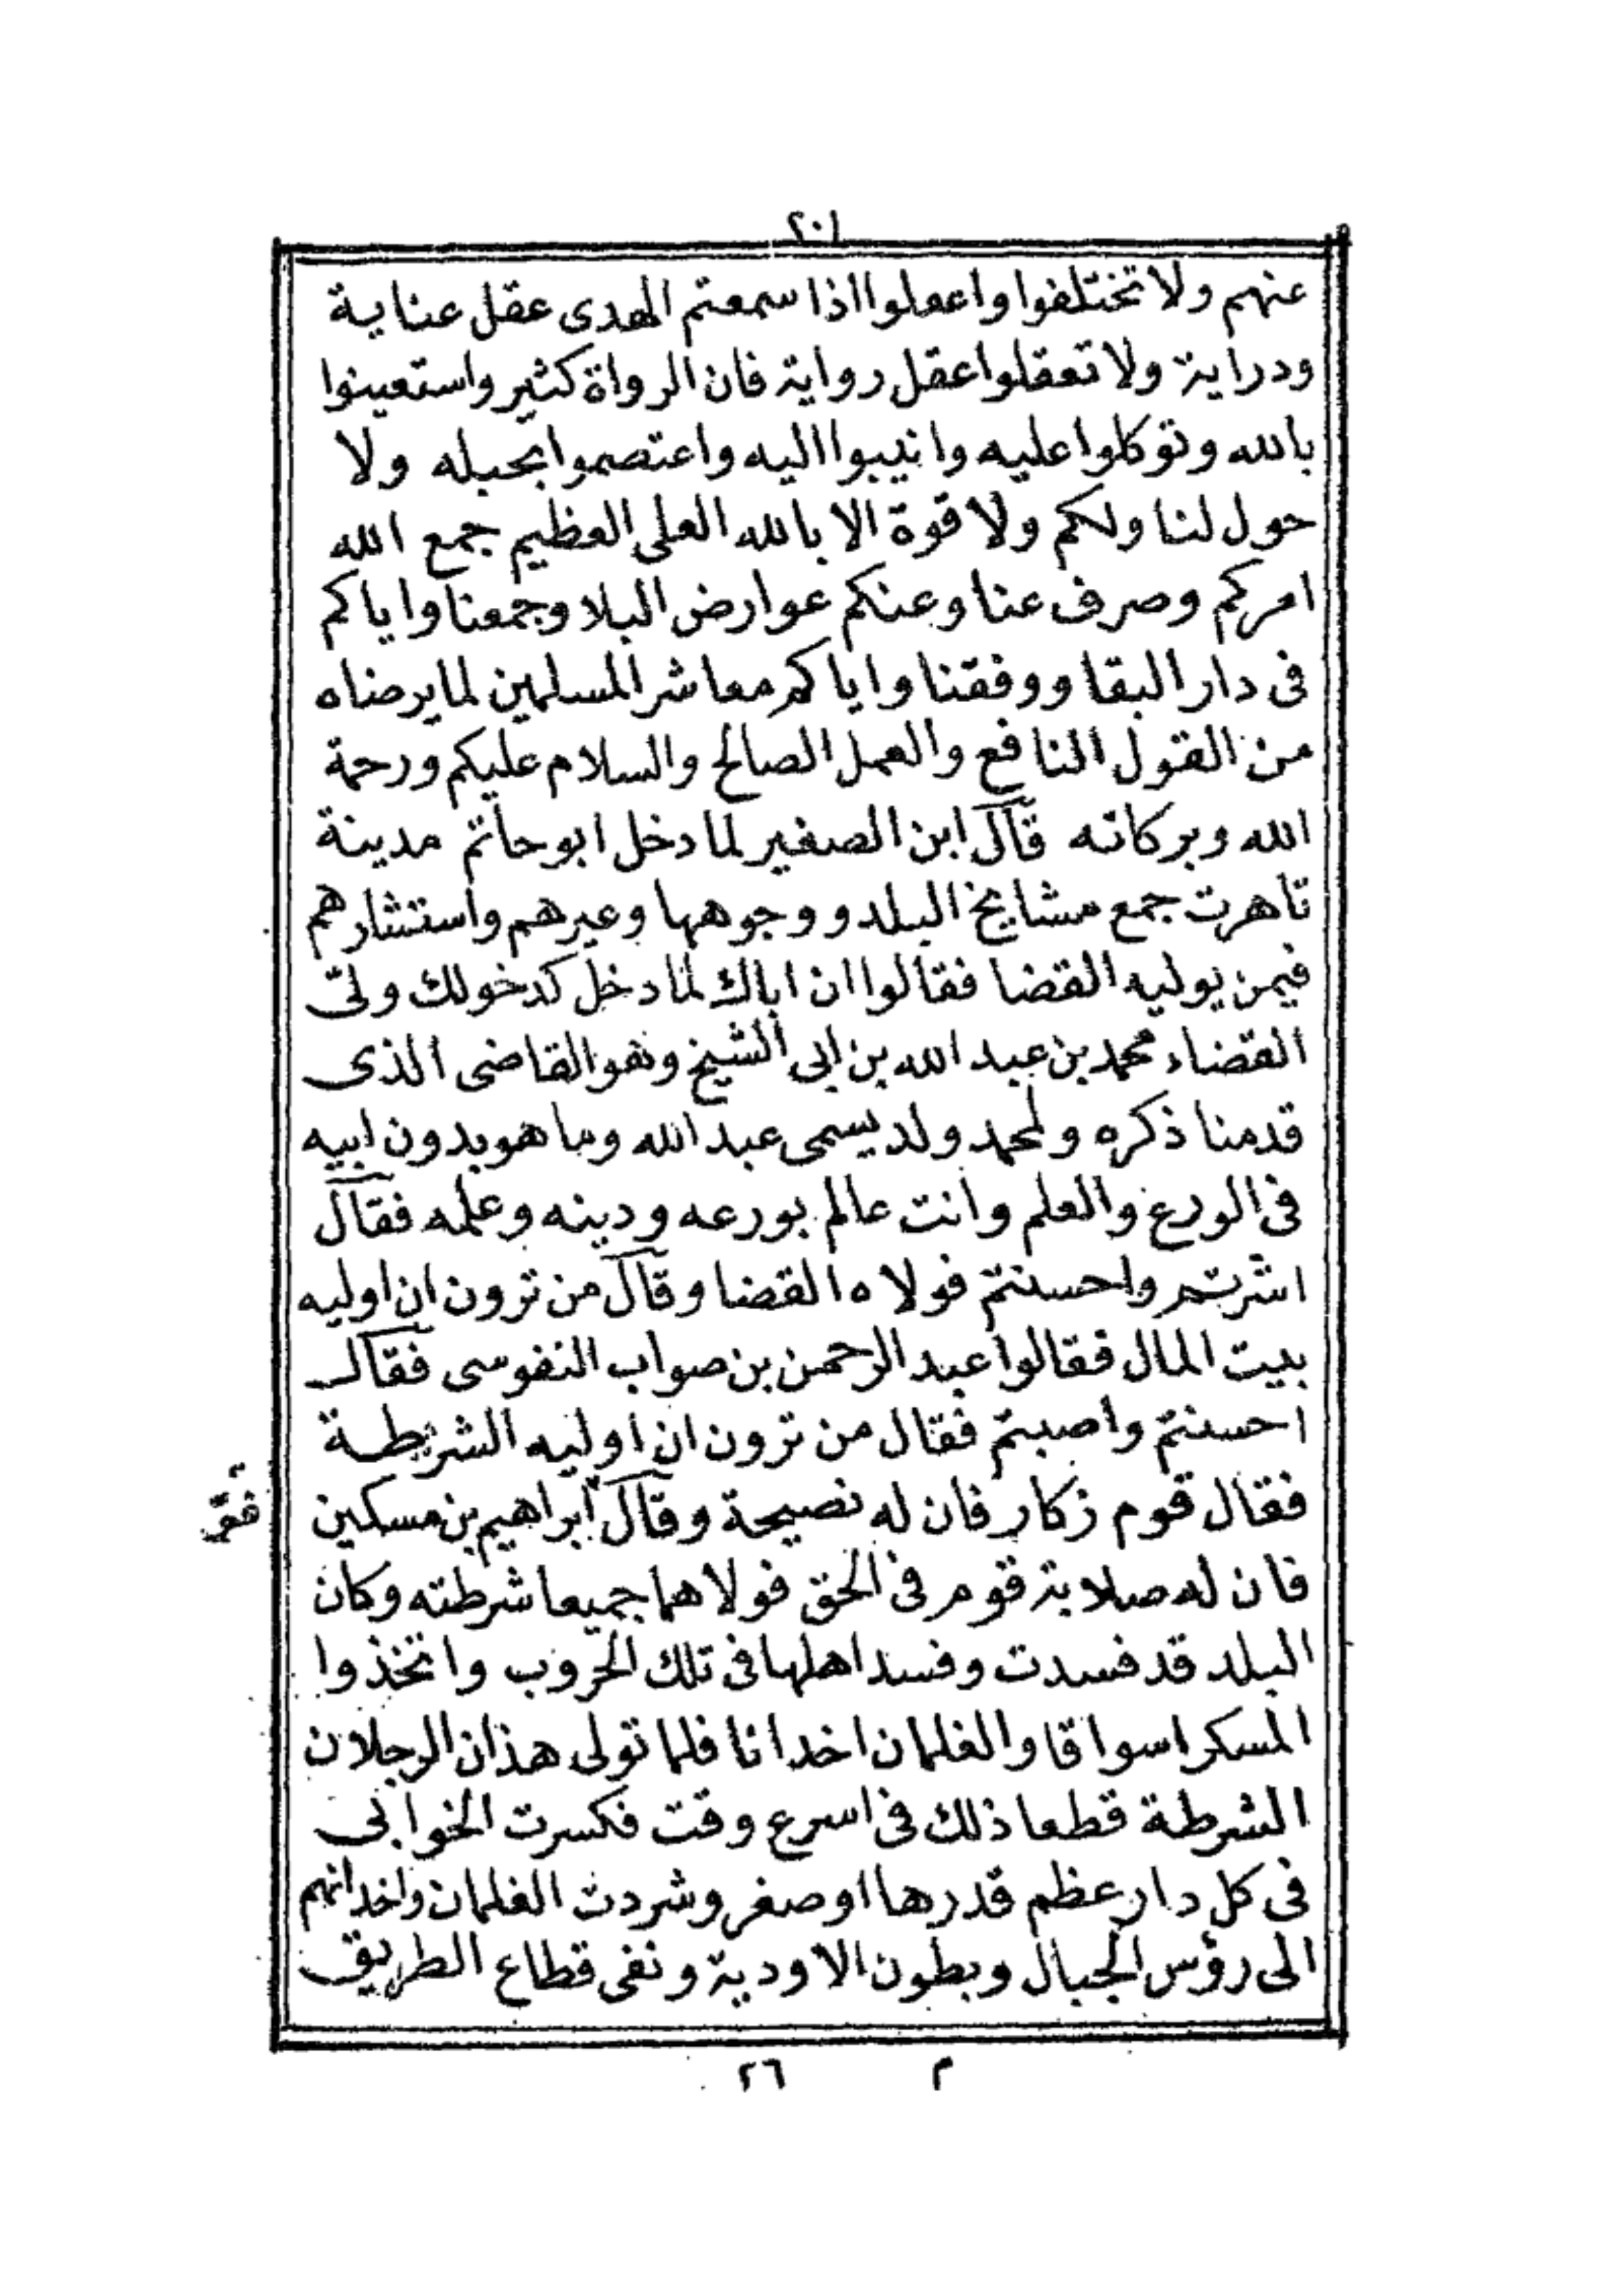 ٢٠١
عنهم ولا تختلفوا واعملوا اذا سمعتم الهدى عقل عناية
ودراية ولا تعقلوا عقل رواية فان الرواة كثير واستعينوا
بالله وتوكلوا عليه وانيبوا اليه واعتصموا بحبله ولا
حول لنا ولكم ولا قوة الا بالله العلى العظيم جمع الله
امركم وصرف عنا وعنكم عوارض البلا وجمعنا واياكم
فى دار البقا ووفقنا واياكم معاشر المسلمين لما يرضاه
من القول النافع والعمل الصالح والسلام عليكم ورحمة
الله وبركاته قال ابن الصغير لما دخل ابو حاتم مدينة
تاهرت جمع مشايخ البلد ووجوهها وغيرهم واستشارهم
فيمن يوليه القضا فقالوا ان اباك لما دخل كدخولك ولى
القضاء محمد بن عبد الله بن ابى الشيخ وهو القاضى الذى
قدمنا ذكره ولمحمد ولد يسمى عبد الله وما هو بدون ابيه
فى الورع والعلم وانت عالم بورعه ودينه وعلمه فقال
اشرتم واحسنتم فولاه القضا وقال من ترون ان اوليه
بيت المال فقالوا عبد الرحمن بن صواب النفوسى فقال
احسنتم واصبتم فقال من ترون ان اوليه الشرطة
فقال قوم زكار فان له نصيحة وقال ابراهيم بن مسكين
فان له صلابة قوم فى الحق فولاهما جميعا شرطته وكان
البلد قد فسدت وفسد اهلها فى تلك الحروب واتخذوا
المسكر اسواقا والغلمان اخدانا فلما تولى هذان الرجلان
الشرطة قطعا ذلك فى اسرع وقت فكسرت الخوابى
فى كل دار عظم قدرها او صغر وشردت الغلمان واخدانهم
الى رؤس الجبال وبطون الاودية ونفى قطاع الطريق
م ٢٦